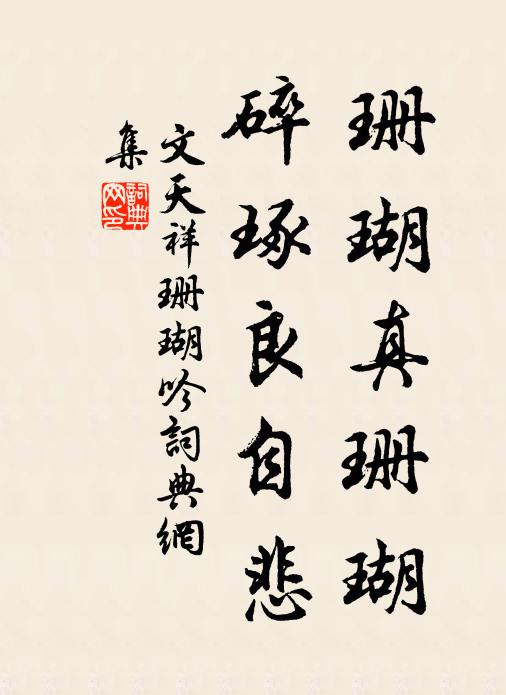 珊瑚真珊瑚
碎琢良自悲
文天祥珊瑚吟詞典網
集
詞典网印